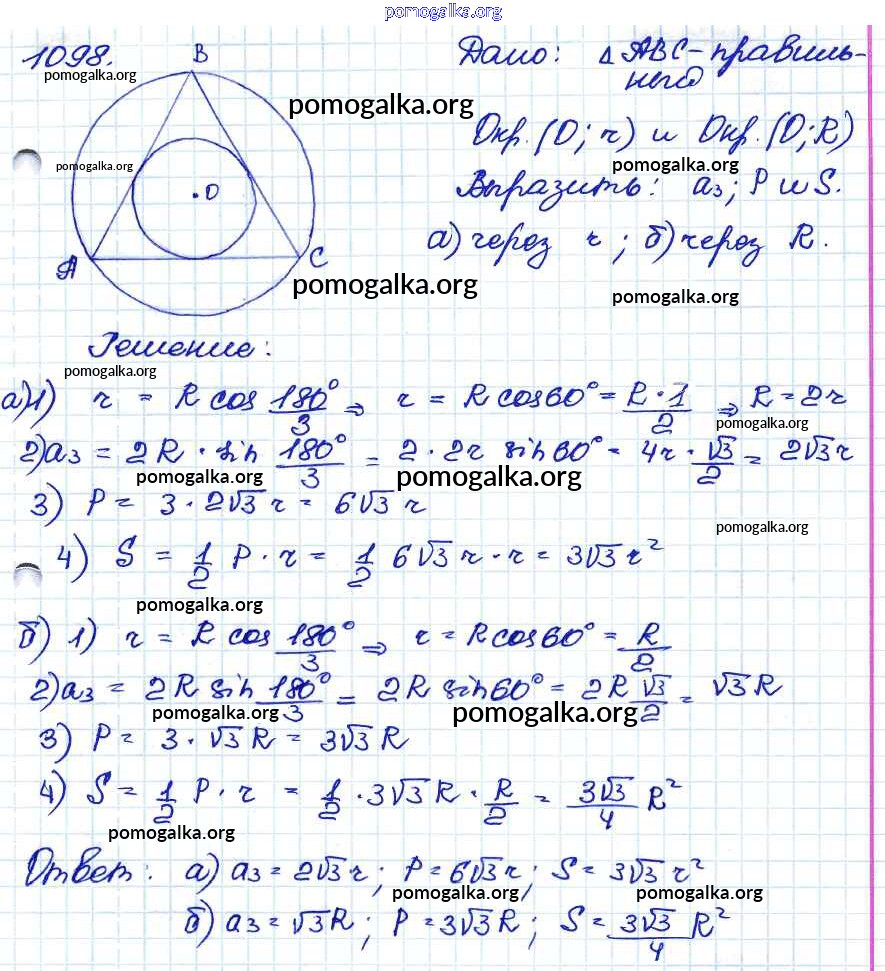 pomogalka.org
1098.
pomogalka.org
B
Дано: Δ ABC - правиль-
ный
pomogalka.org
Окр. (O; r) и Окр. (O; R)
pomogalka.org
pomogalka.org
Выразить: a₃; P и S.
O
а) через r; б) через R.
A
C
pomogalka.org
pomogalka.org
Решение:
pomogalka.org
а) 1) r = R cos 180°/3 ⇒ r = R cos 60° = R·1/2 ⇒ R = 2r
pomogalka.org
2) a₃ = 2R · sin 180°/3 = 2 · 2r sin 60° = 4r · √3/2 = 2√3 r
pomogalka.org
pomogalka.org
3) P = 3 · 2√3 r = 6√3 r
pomogalka.org
4) S = 1/2 P · r = 1/2 6√3 r · r = 3√3 r²
pomogalka.org
б) 1) r = R cos 180°/3 ⇒ r = R cos 60° = R/2
2) a₃ = 2R sin 180°/3 = 2R sin 60° = 2R √3/2 = √3 R
pomogalka.org
pomogalka.org
3) P = 3 · √3 R = 3√3 R
4) S = 1/2 P · r = 1/2 · 3√3 R · R/2 = 3√3/4 R²
pomogalka.org
Ответ: а) a₃ = 2√3 r; P = 6√3 r; S = 3√3 r²
pomogalka.org
pomogalka.org
б) a₃ = √3 R; P = 3√3 R; S = 3√3/4 R²